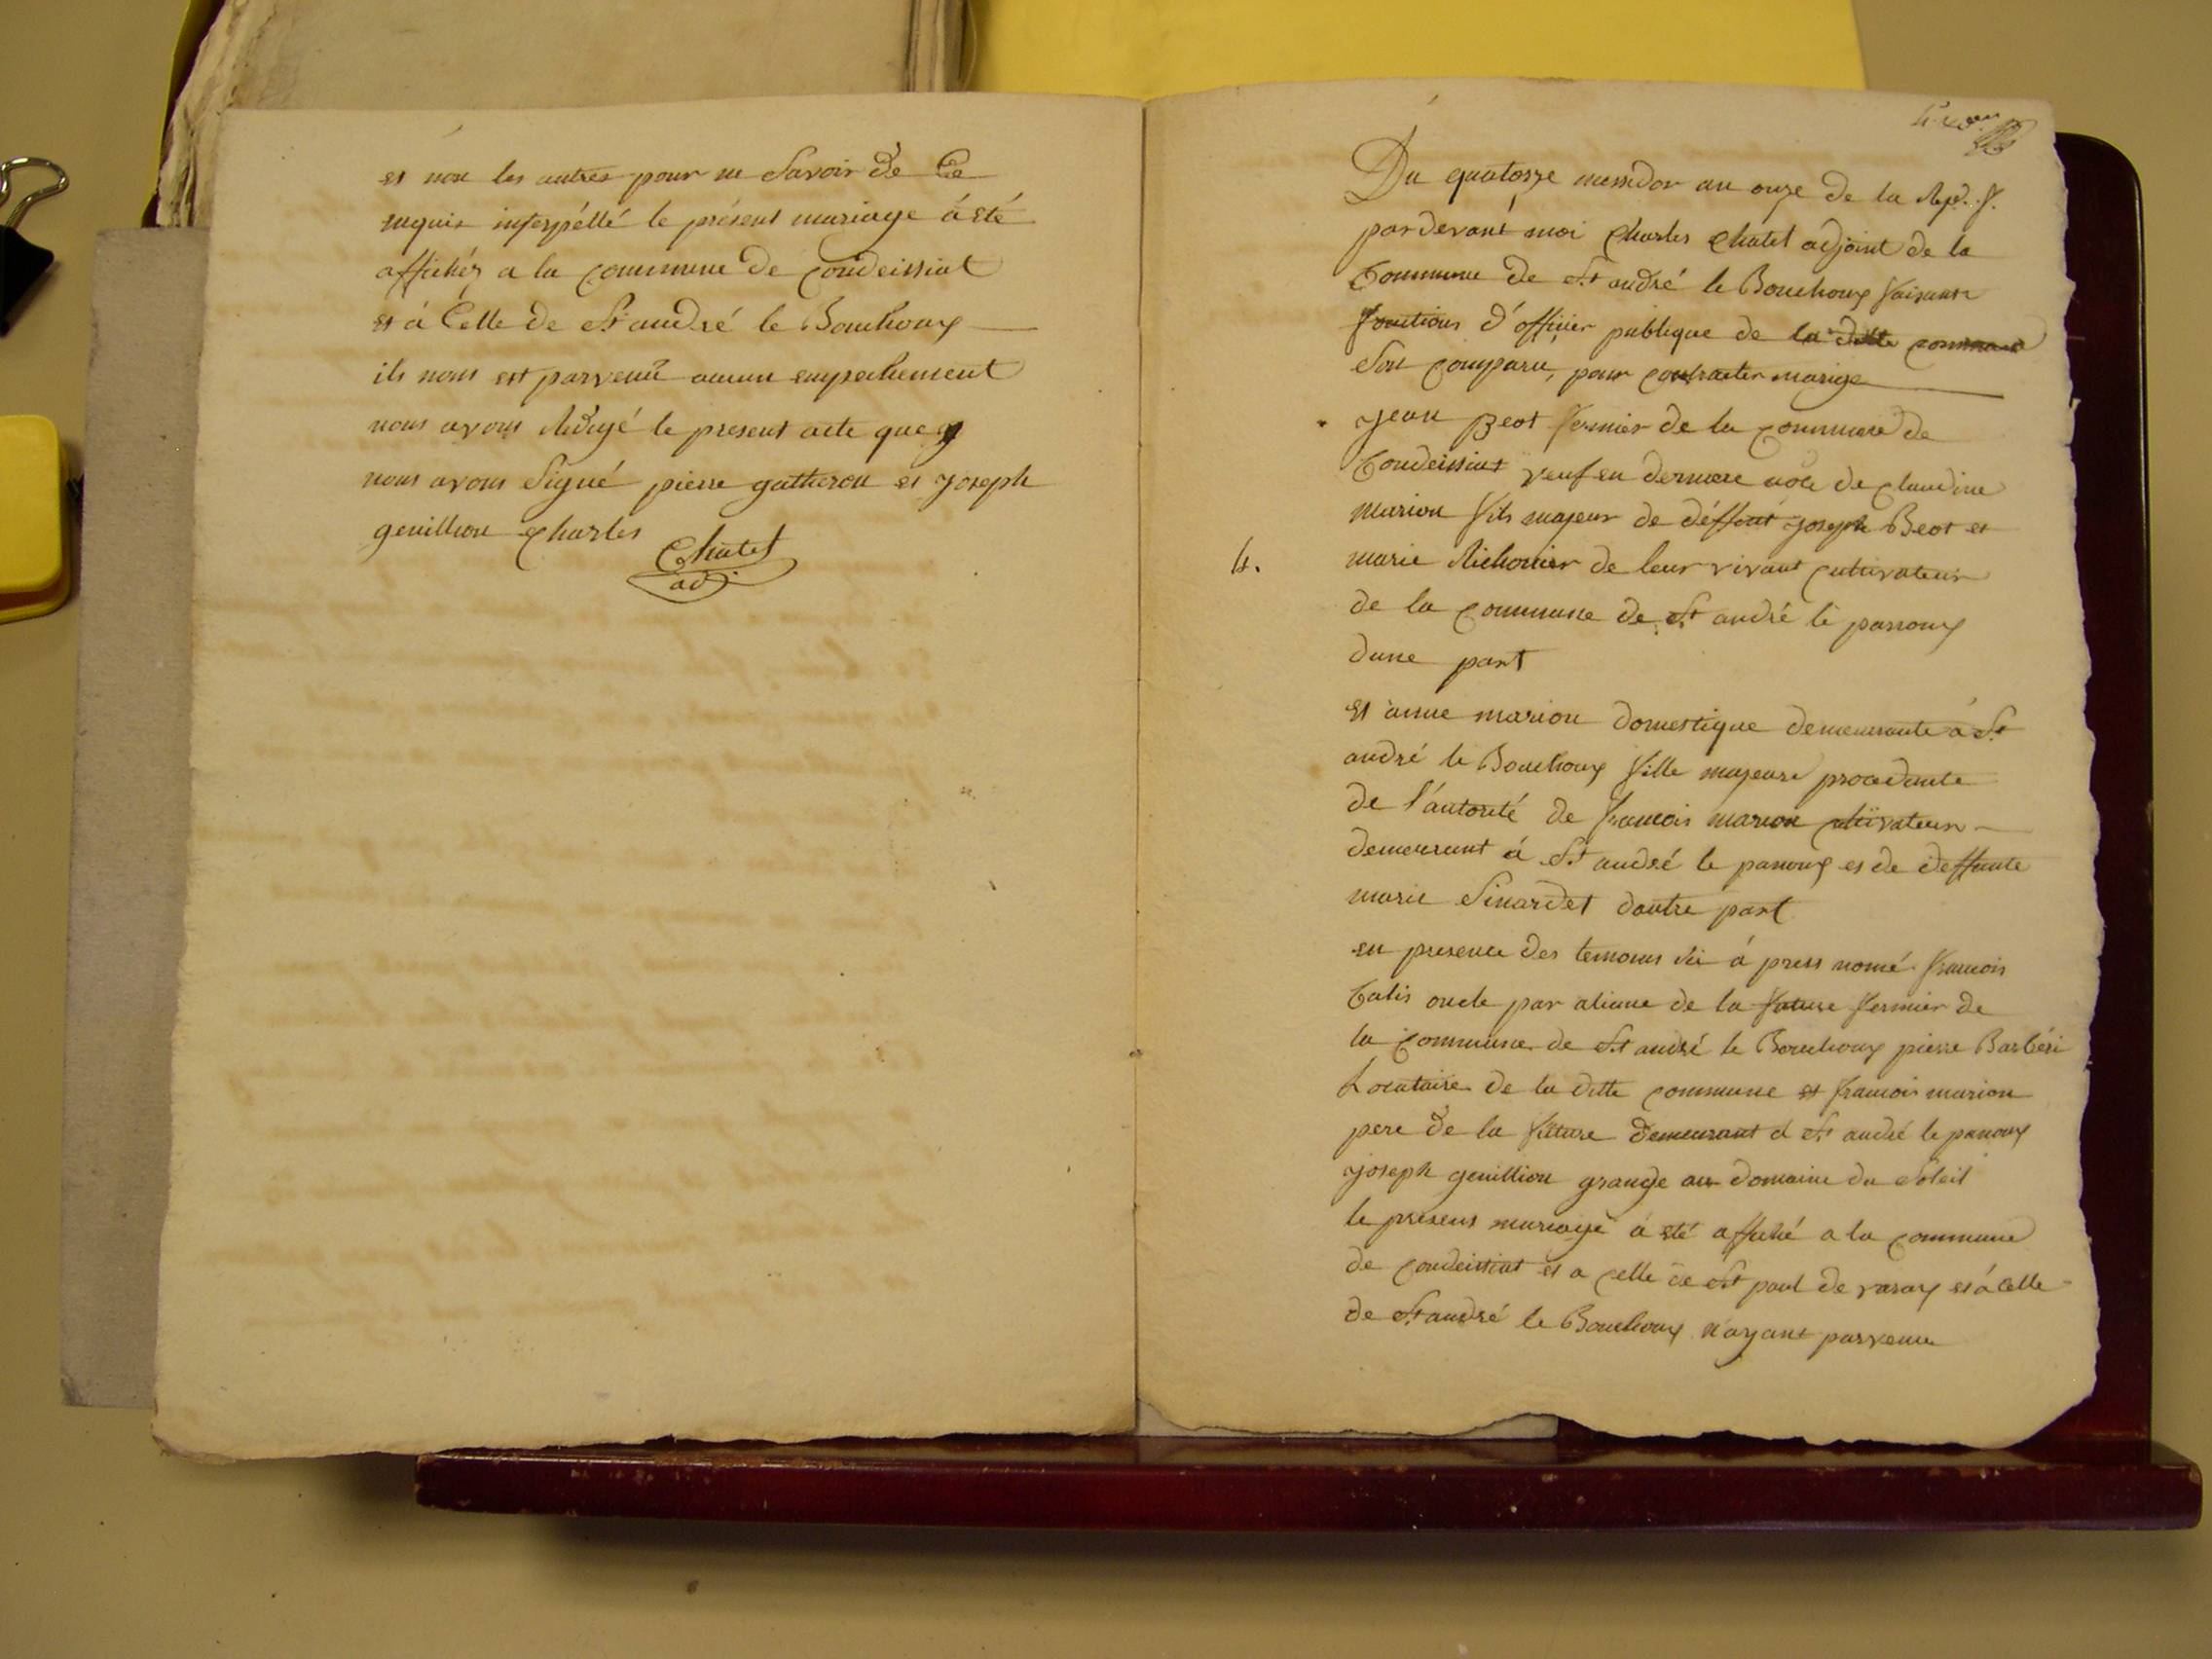 et non les autres pour ne Savoir de Ce
requis interpéllé le présent mariage à été
affichéz a la commune de condeissiat
et à Celle de St andré le Bouchoux
ils nous est parvenû aucun empechement
nous avons Redigé le present acte que
nous avons Signé pierre gatheron et joseph
genillion Charles
Chatel
adj.
Du quatorze messidor an onze de la Rep. f.
pardevant moi Charles Chatel adjoint de la
Commune de St andré le Bouchoux faisant
fontions d'officier publique de la ditte commune
Son comparu, pour contracter marige
jean Beot fermier de la commune de
Condeissiat veuf en derniere noce de claudine
marion fils majeur de déffunt joseph Beot et
4. marie Richonier de leur vivant cultivateur
de la commune de St andré le panoux
dune part
Et anne marion domestique demeurante à St
andré le Bouchoux fille majeure procedante
de l'autorité de francois marion cultivateur
demeurant á St andré le panoux et de deffunte
marie Sinardet dautre part
en presence des temoins Ici á press nomé francois
Calis oncle par aliance de la future fermier de
la commune de St andré le Bouchoux pierre Barberi
Locataire de la ditte commune et francois marion
pere de la future demeurant à St andré le panoux
joseph genillion grange au domaine du Soleil
le present mariage à été affiché a la commune
de condeissiat et a celle de St paul de varax et á Celle
de St andré le Bouchoux n'ayant parvenu